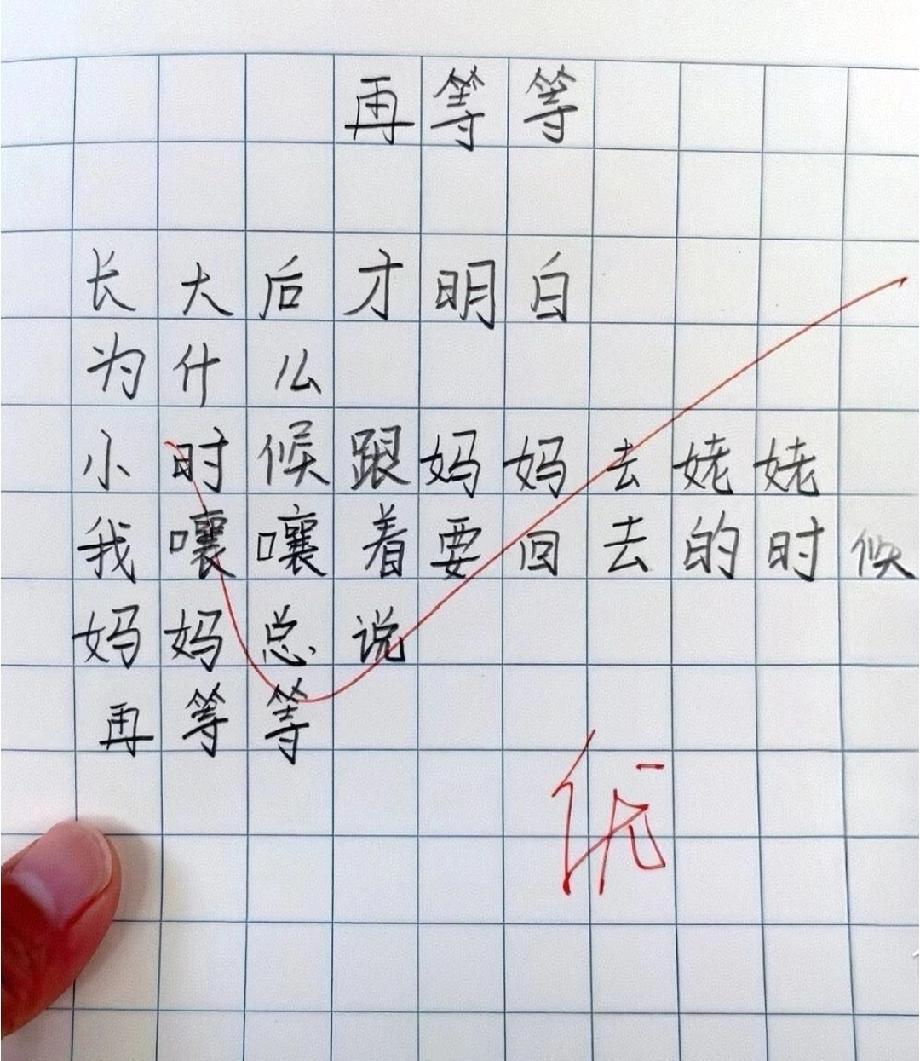 再等等
长大后才明白
为什么
小时候跟妈妈去姥姥
我嚷嚷着要回去的时候
妈妈总说
再等等
优-